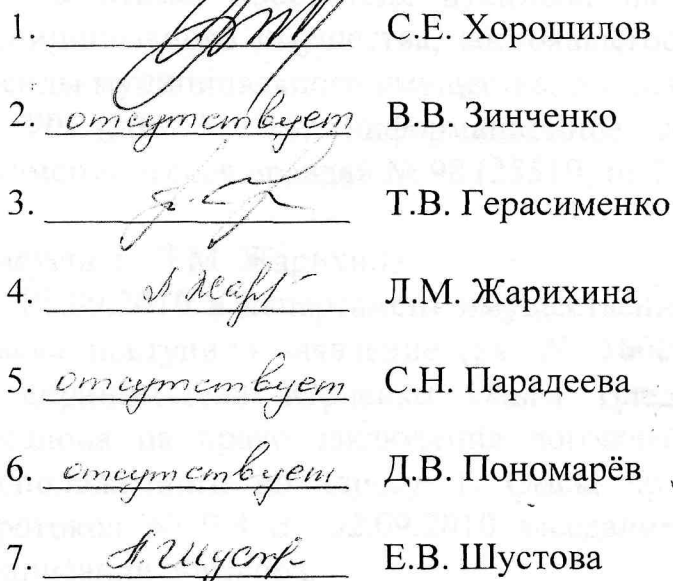 1. С.Е. Хорошилов
2. отсутствует В.В. Зинченко
3. Т.В. Герасименко
4. Л.М. Жарихина
5. отсутствует С.Н. Парадеева
6. отсутствует Д.В. Пономарёв
7. Е.В. Шустова